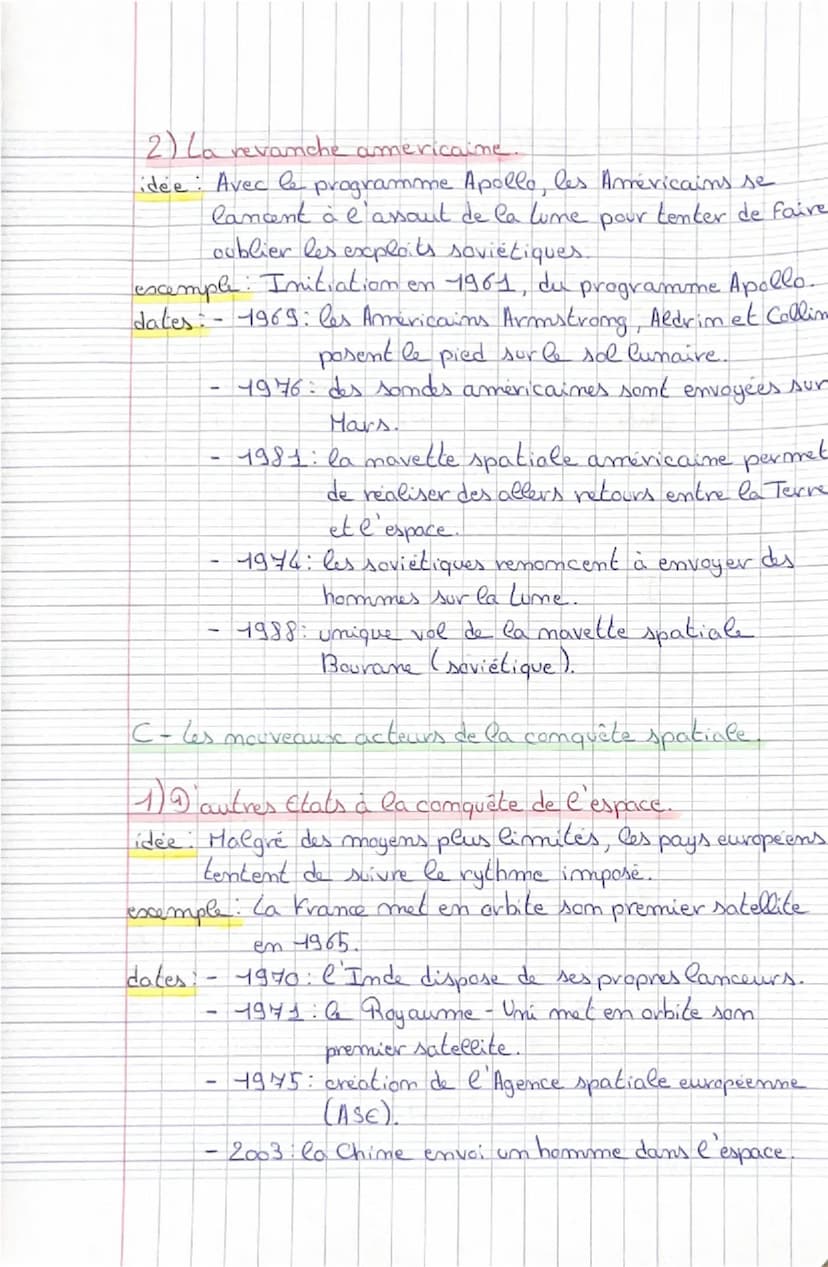 2) La revanche americaine.
idée : Avec le programme Apollo, les Américains se
lancent à l'assaut de la lune pour tenter de faire
oublier les exploits soviétiques.
exemple : Initiation en 1961, du programme Apollo.
dates : - 1969 : les Américains Armstrong, Aldrin et Collin
posent le pied sur le sol lunaire.
- 1976 : des sondes américaines sont envoyées sur
Mars.
- 1981 : la navette spatiale américaine permet
de réaliser des allers retours entre la Terre
et l'espace.
- 1974 : les soviétiques renoncent à envoyer des
hommes sur la lune.
- 1988 : unique vol de la navette spatiale
Bourane (soviétique).
C - Les nouveaux acteurs de la conquête spatiale.
1) D'autres Etats à la conquête de l'espace.
idée : Malgré des moyens plus limités, les pays européens
tentent de suivre le rythme imposé.
exemple : La France met en orbite son premier satellite
en 1965.
dates : - 1970 : l'Inde dispose de ses propres lanceurs.
- 1971 : le Royaume - Uni met en orbite son
premier satellite.
- 1975 : création de l'Agence spatiale européenne
(ASE).
- 2003 : la Chine envoi un homme dans l'espace.